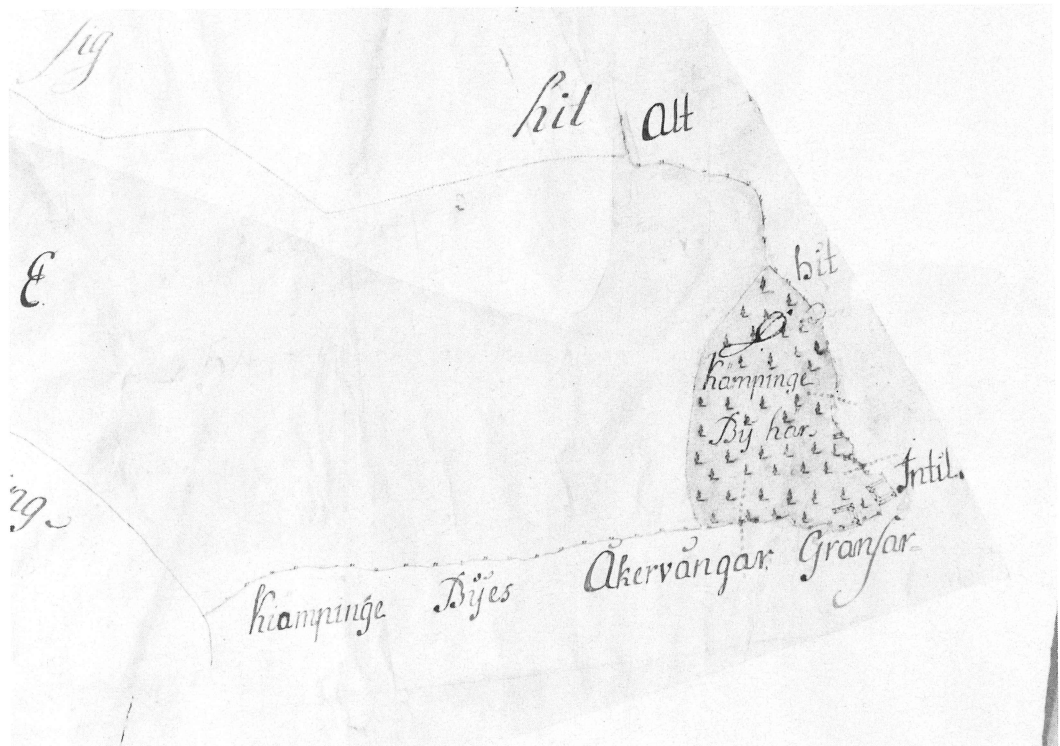 sig
hit Alt
hit
E
Kampinge
Bÿ har
Intil.
ing
Kiampinge Bÿes Åkervångar Gränsar